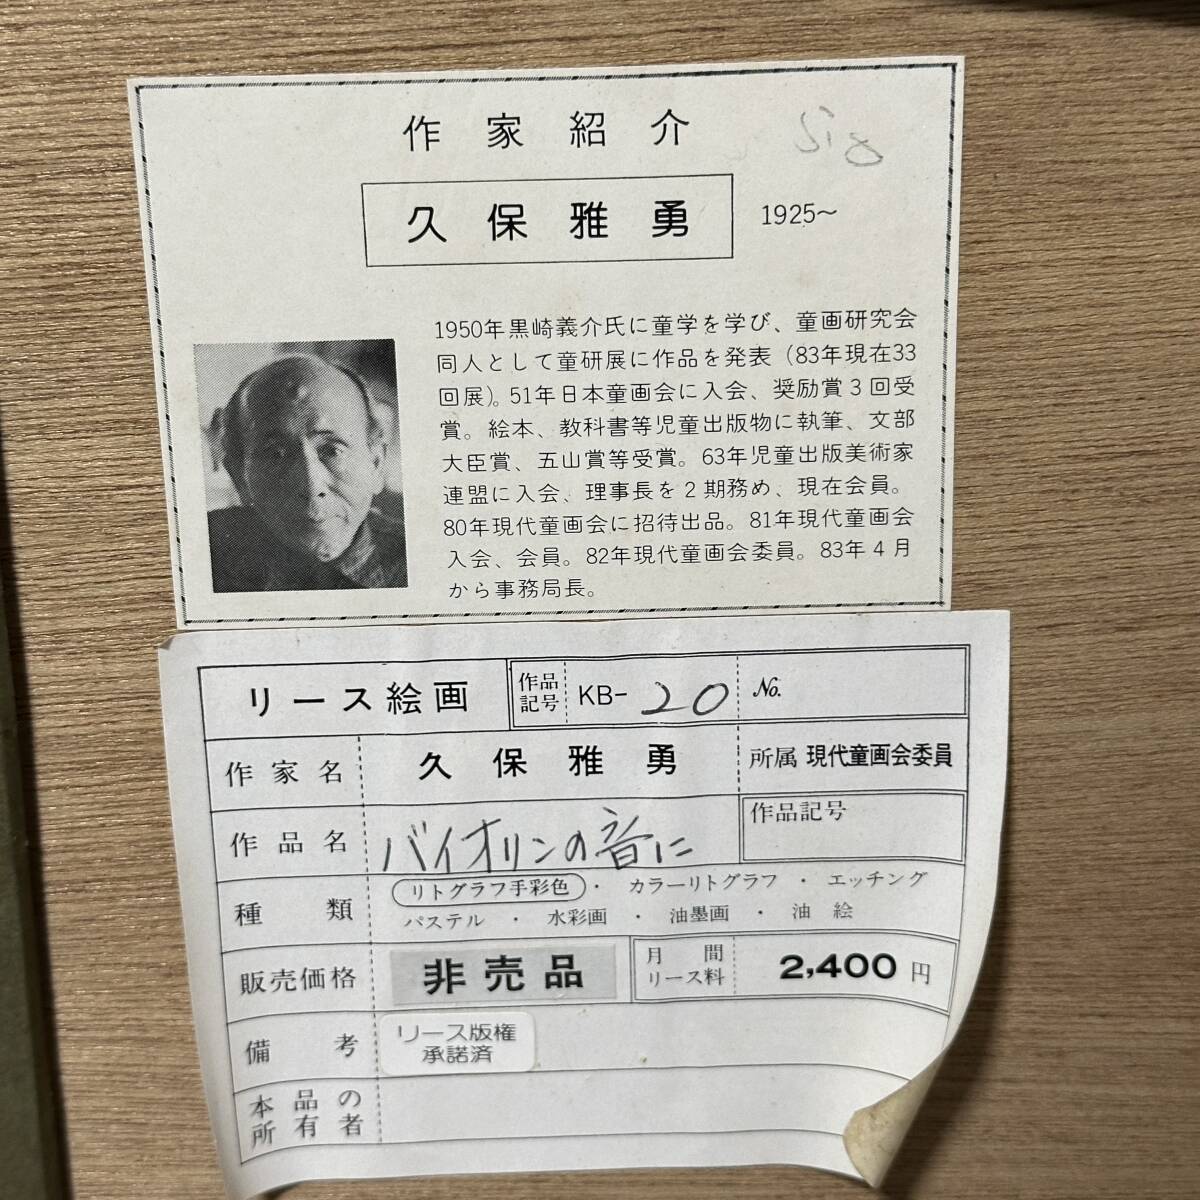 作家紹介
久保雅勇 1925〜
1950年黒崎義介氏に童学を学び、童画研究会
同人として童研展に作品を発表（83年現在33
回展）。51年日本童画会に入会、奨励賞3回受
賞。絵本、教科書等児童出版物に執筆、文部
大臣賞、五山賞等受賞。63年児童出版美術家
連盟に入会、理事長を2期務め、現在会員。
80年現代童画会に招待出品。81年現代童画会
入会、会員。82年現代童画会委員。83年4月
から事務局長。
リース絵画 作品記号 KB-20 No.
作家名 久保雅勇 所属 現代童画会委員
作品名 バイオリンの音に 作品記号
種類 リトグラフ手彩色・カラーリトグラフ・エッチング
パステル・水彩画・油墨画・油絵
販売価格 非売品 月間リース料 2,400円
備考 リース版権
承諾済
本品の
所有者